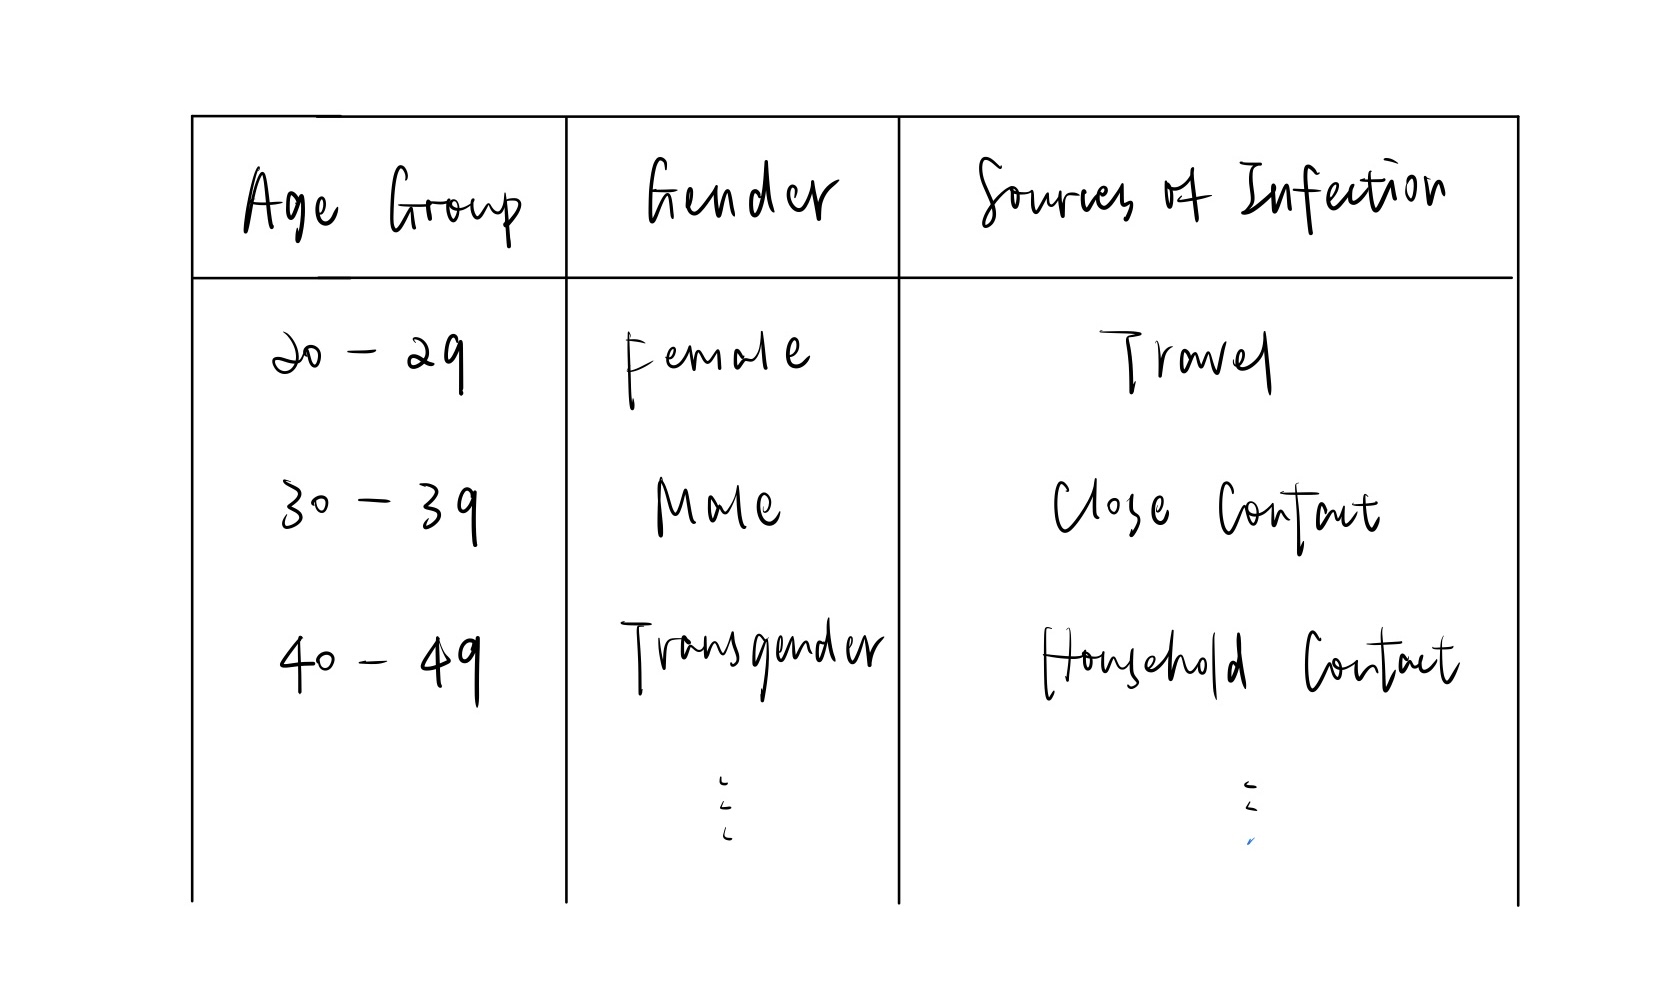 Age Group Gender Sources of Infection
20 - 29 Female Travel
30 - 39 Male Close Contact
40 - 49 Transgender Household Contact